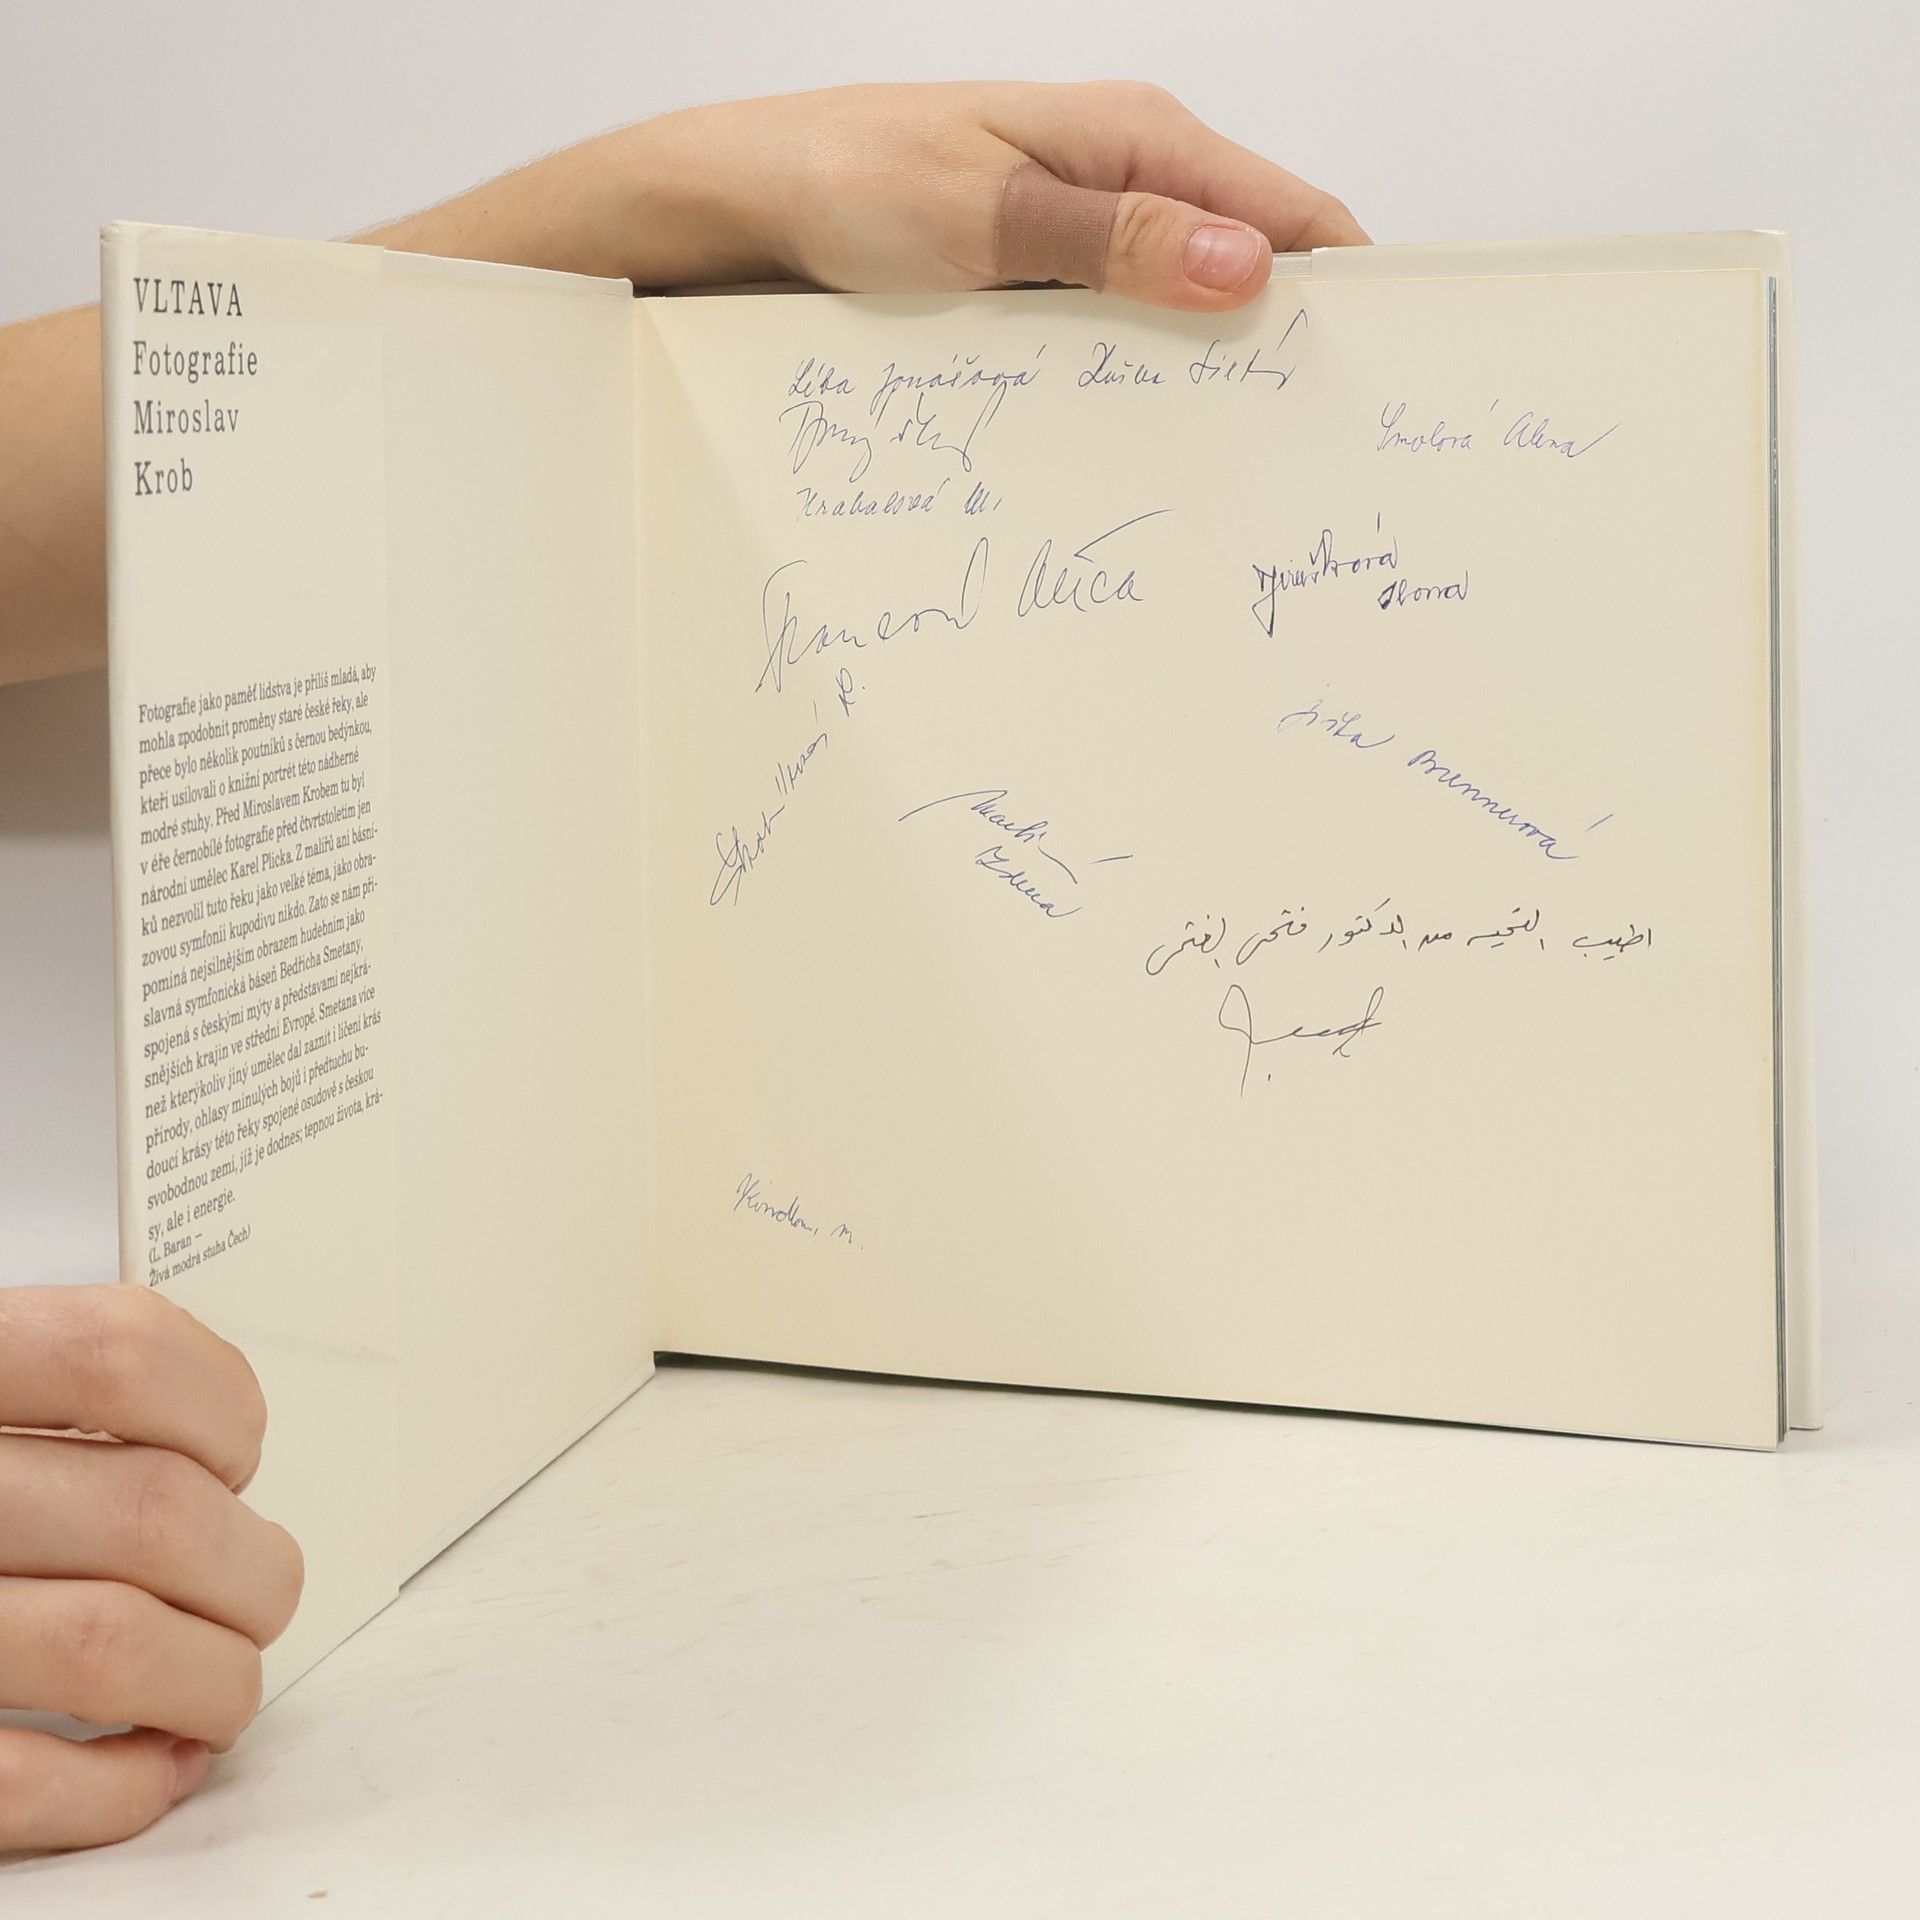 VLTAVA
Fotografie
Miroslav
Krob
Fotografie jako paměť lidstva je příliš mladá, aby
mohla zpodobnit proměny staré české řeky, ale
přece bylo několik poutníků s černou bedýnkou,
kteří usilovali o knižní portrét této nádherné
modré stuhy. Před Miroslavem Krobem tu byl
v éře černobílé fotografie před čtvrtstoletím jen
národní umělec Karel Plicka. Z malířů ani básní-
ků nezvolil tuto řeku jako velké téma, jako obra-
zovou symfonii kupodivu nikdo. Zato se nám při-
pomíná nejsilnějším obrazem hudebním jako
slavná symfonická báseň Bedřicha Smetany,
spojená s českými mýty a představami nejkrá-
snějších krajin ve střední Evropě. Smetana více
než kterýkoliv jiný umělec dal zaznít i líčení krás
přírody, ohlasy minulých bojů i předtuchu bu-
doucí krásy této řeky spojené osudově s českou
svobodnou zemí, jíž je dodnes; tepnou života, krá-
sy, ale i energie.
(L. Baran –
Živá modrá stuha Čech)
Líba Jonášová
Smolová Alena
Hrabalová M.
Jirušková
Ilona
Jiška Brunnerová
Zdena
اطيب التحيه من الدكتور فتحى لفتحى